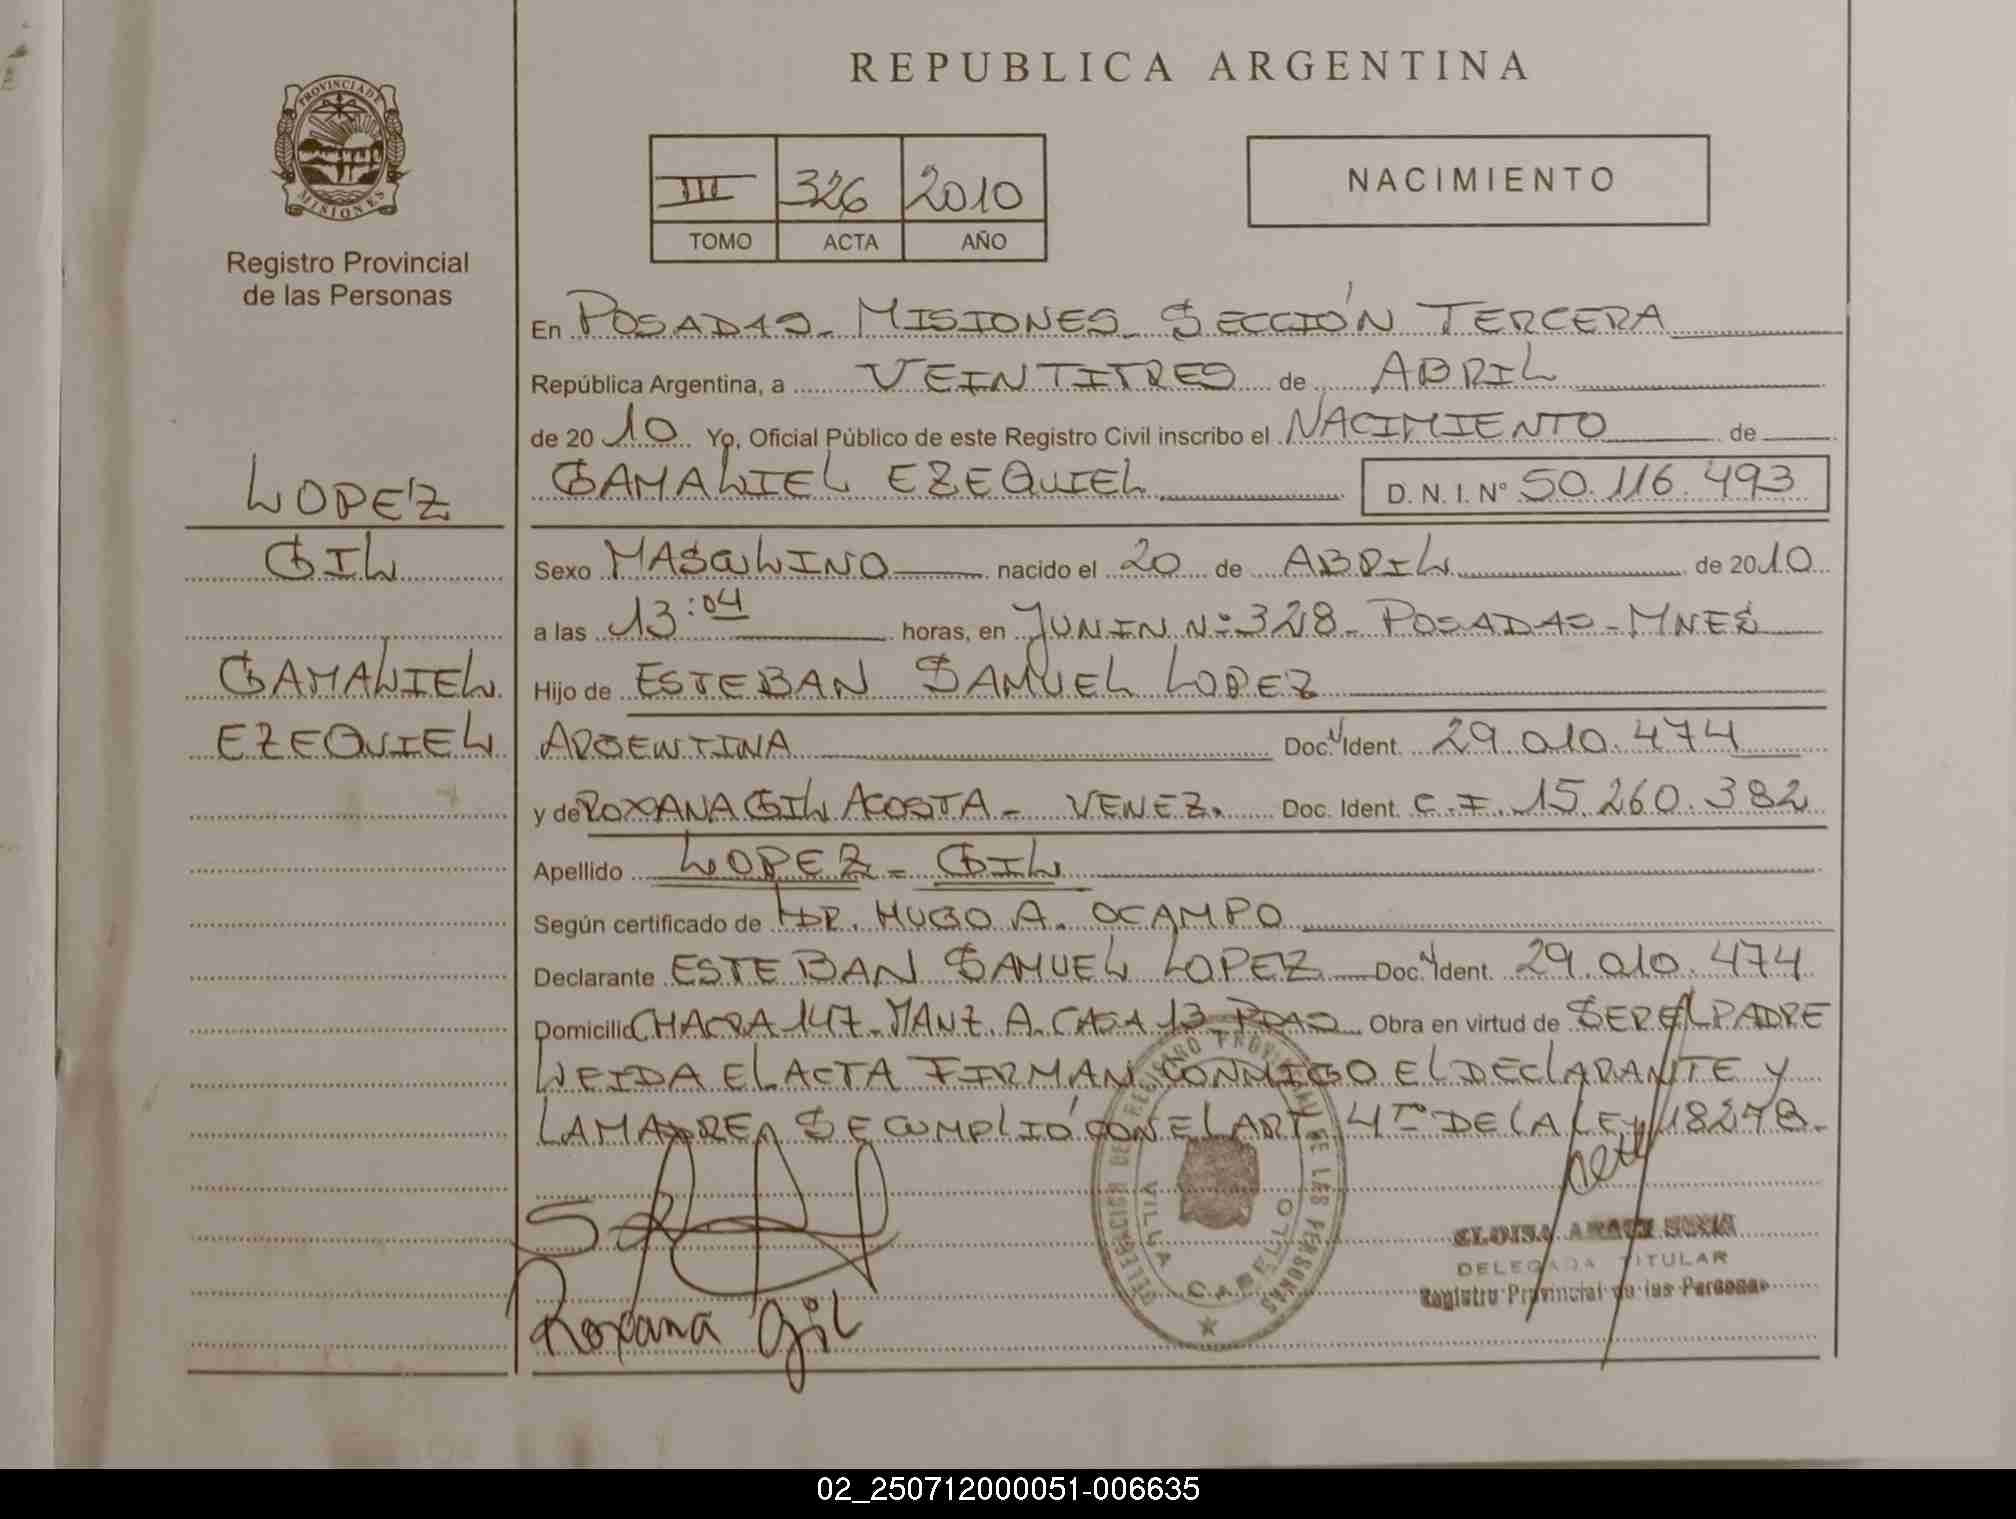 REPUBLICA ARGENTINA
PROVINCIA DE
MISIONES
Registro Provincial
de las Personas
III 326 2010
TOMO ACTA AÑO
NACIMIENTO
En POSADAS_ MISIONES_ SECCIÓN TERCERA
República Argentina, a VEINTITRES de ABRIL
de 2010 Yo, Oficial Público de este Registro Civil inscribo el NACIMIENTO de
GAMALIEL EZEQUIEL D. N. I. N° 50.116.493
LOPEZ
GIL
GAMALIEL
EZEQUIEL
Sexo MASCULINO nacido el 20 de ABRIL de 2010
a las 13:04 horas, en JUNIN Nº 328_ POSADAS_MNES
Hijo de ESTEBAN SAMUEL LOPEZ
ARGENTINA Doc. Ident. 29.010.474
y de ROXANA GIL ACOSTA_ VENEZ. Doc. Ident. C.I. 15.260.382
Apellido LOPEZ_ GIL
Según certificado de DR. HUGO A. OCAMPO
Declarante ESTEBAN SAMUEL LOPEZ Doc. Ident. 29.010.474
Domicilio CHACRA 147_MANZ. A. CASA 13_PDAS Obra en virtud de SER EL PADRE
LEIDA EL ACTA FIRMAN CONMIGO EL DECLARANTE Y
LA MADRE, SE CUMPLIÓ CON EL ART. 4to DE LA LEY 18248.
DELEGACION DE REGISTRO PROVINCIAL DE LAS PERSONAS
VILLA CABELLO
ELOISA
DELEGADA TITULAR
Registro Provincial de las Personas
Roxana Gil
02_250712000051-006635